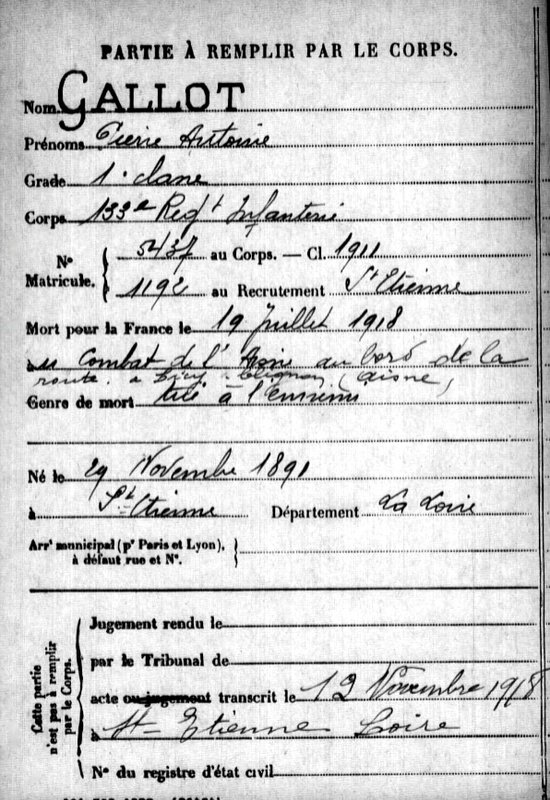 PARTIE À REMPLIR PAR LE CORPS.
Nom GALLOT
Prénoms Pierre Antoine
Grade 1e classe
Corps 133e Regt Infanterie
No Matricule. 5437 au Corps. — Cl. 1911
1192 au Recrutement St Etienne
Mort pour la France le 19 Juillet 1918
au Combat de l' Aisne au bord de la
route (Aisne)
Genre de mort tué à l'ennemi
Né le 29 Novembre 1891
à St Etienne Département La Loire
Arrt municipal (pr Paris et Lyon),
à défaut rue et No.
Cette partie
n'est pas à remplir
par le Corps.
Jugement rendu le
par le Tribunal de
acte ou jugement transcrit le 12 Novembre 1918
à St Etienne Loire
No du registre d'état civil